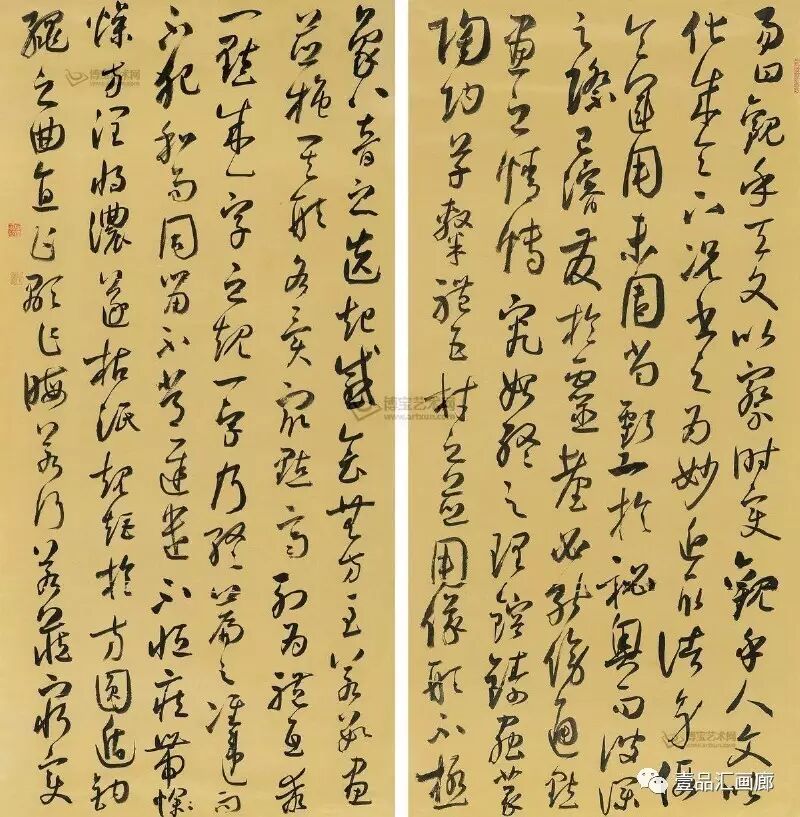 易曰觀乎天文以察時變觀乎人文以
化成天下況書之為妙近取諸身假
令運用未周尚虧工於祕奧而波瀾
之際已濬發於靈臺必能傍通點
畫之情博究始終之理鎔鑄蟲篆
陶均草隸體五材之並用儀形不極
象八音之迭起感會無方至若數畫
並施其形各異衆點齊列為體互乖
一點成一字之規一字乃終篇之准違而
不犯和而不同留不常遲遣不恒疾帶燥
燥方潤將濃遂枯泯規矩於方圓遁鉤
繩之曲直乍顯乍晦若行若藏窮變
博宝艺术网
www.artxun.com
博宝艺术网
博宝艺术网
壹品汇画廊